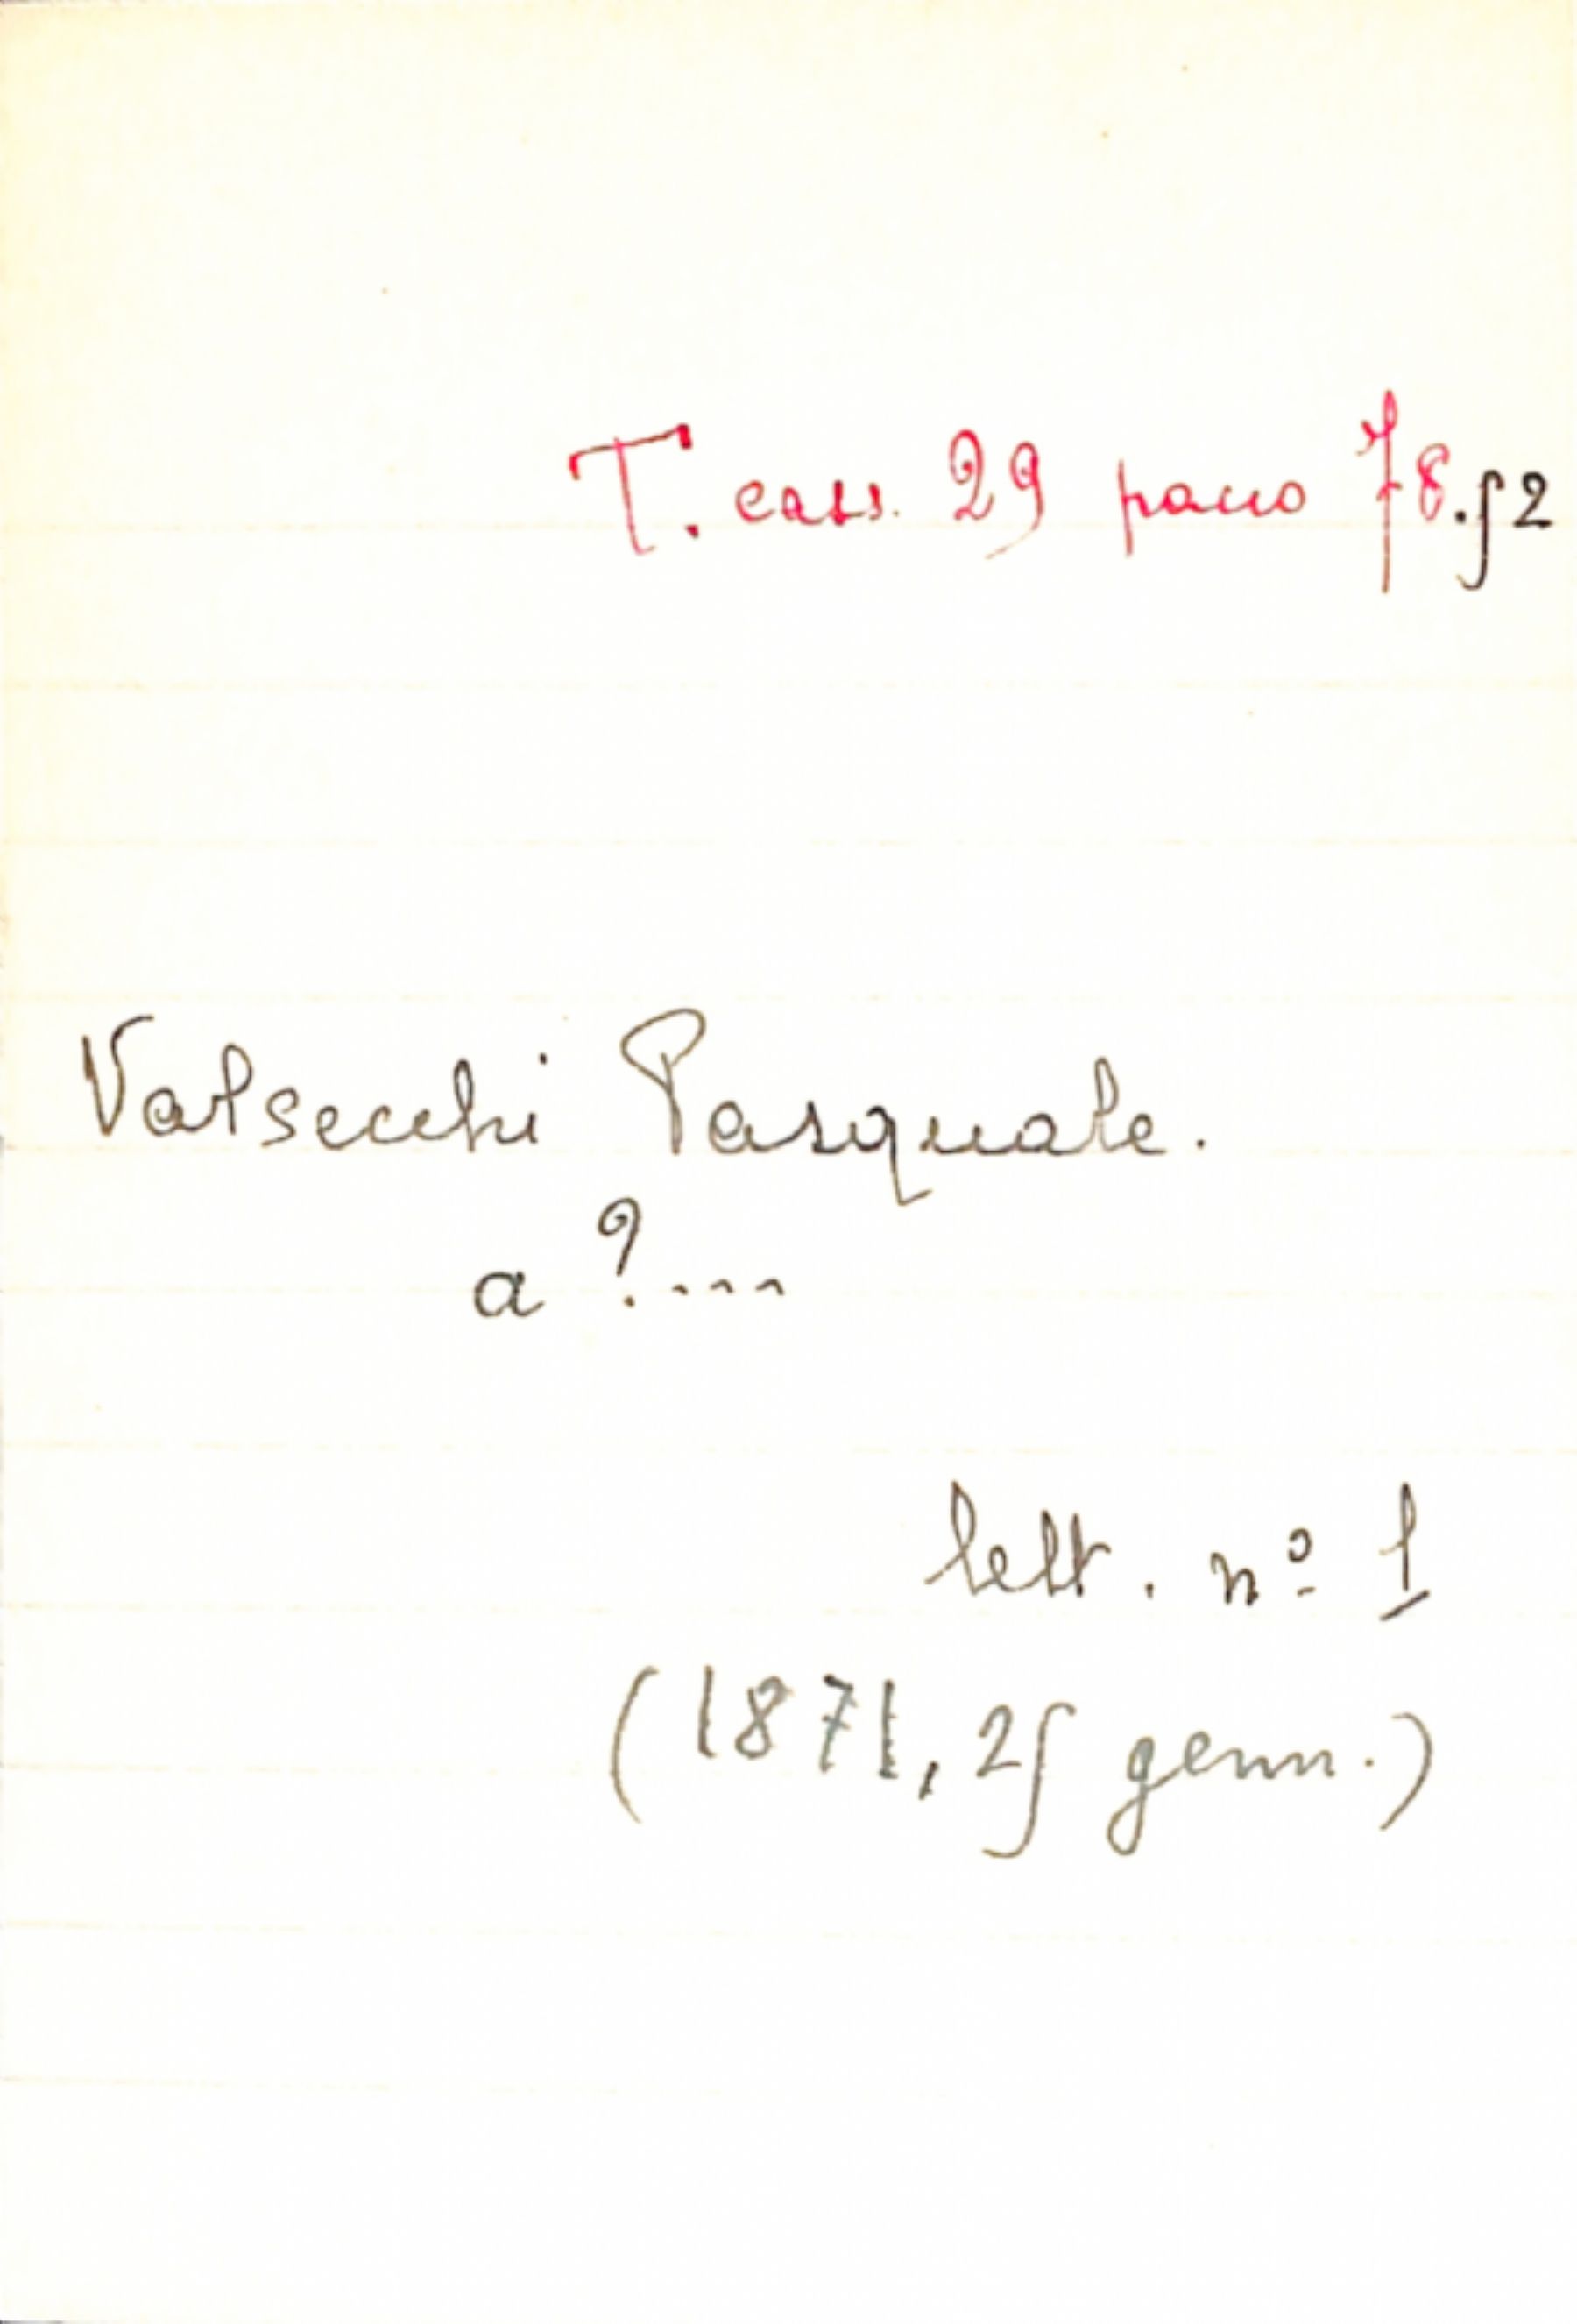 T. cass. 29 pacco 78.52
Valsecchi Pasquale.
a ?....
lett. nº 1
(1871, 25 genn.)